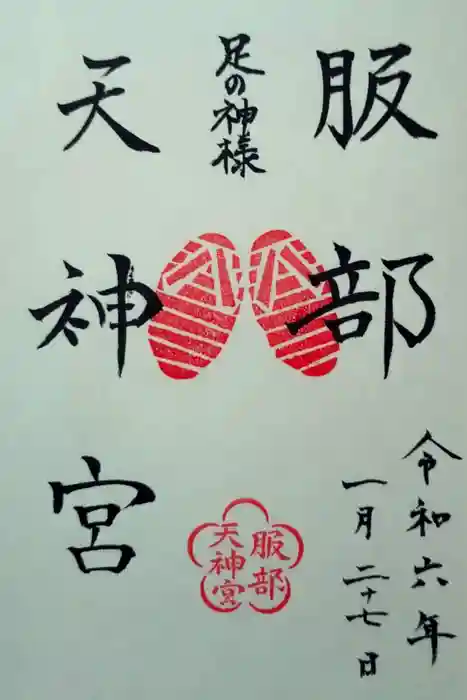 服部
足の神様
天神宮
令和六年
一月二十七日
服部
天神宮